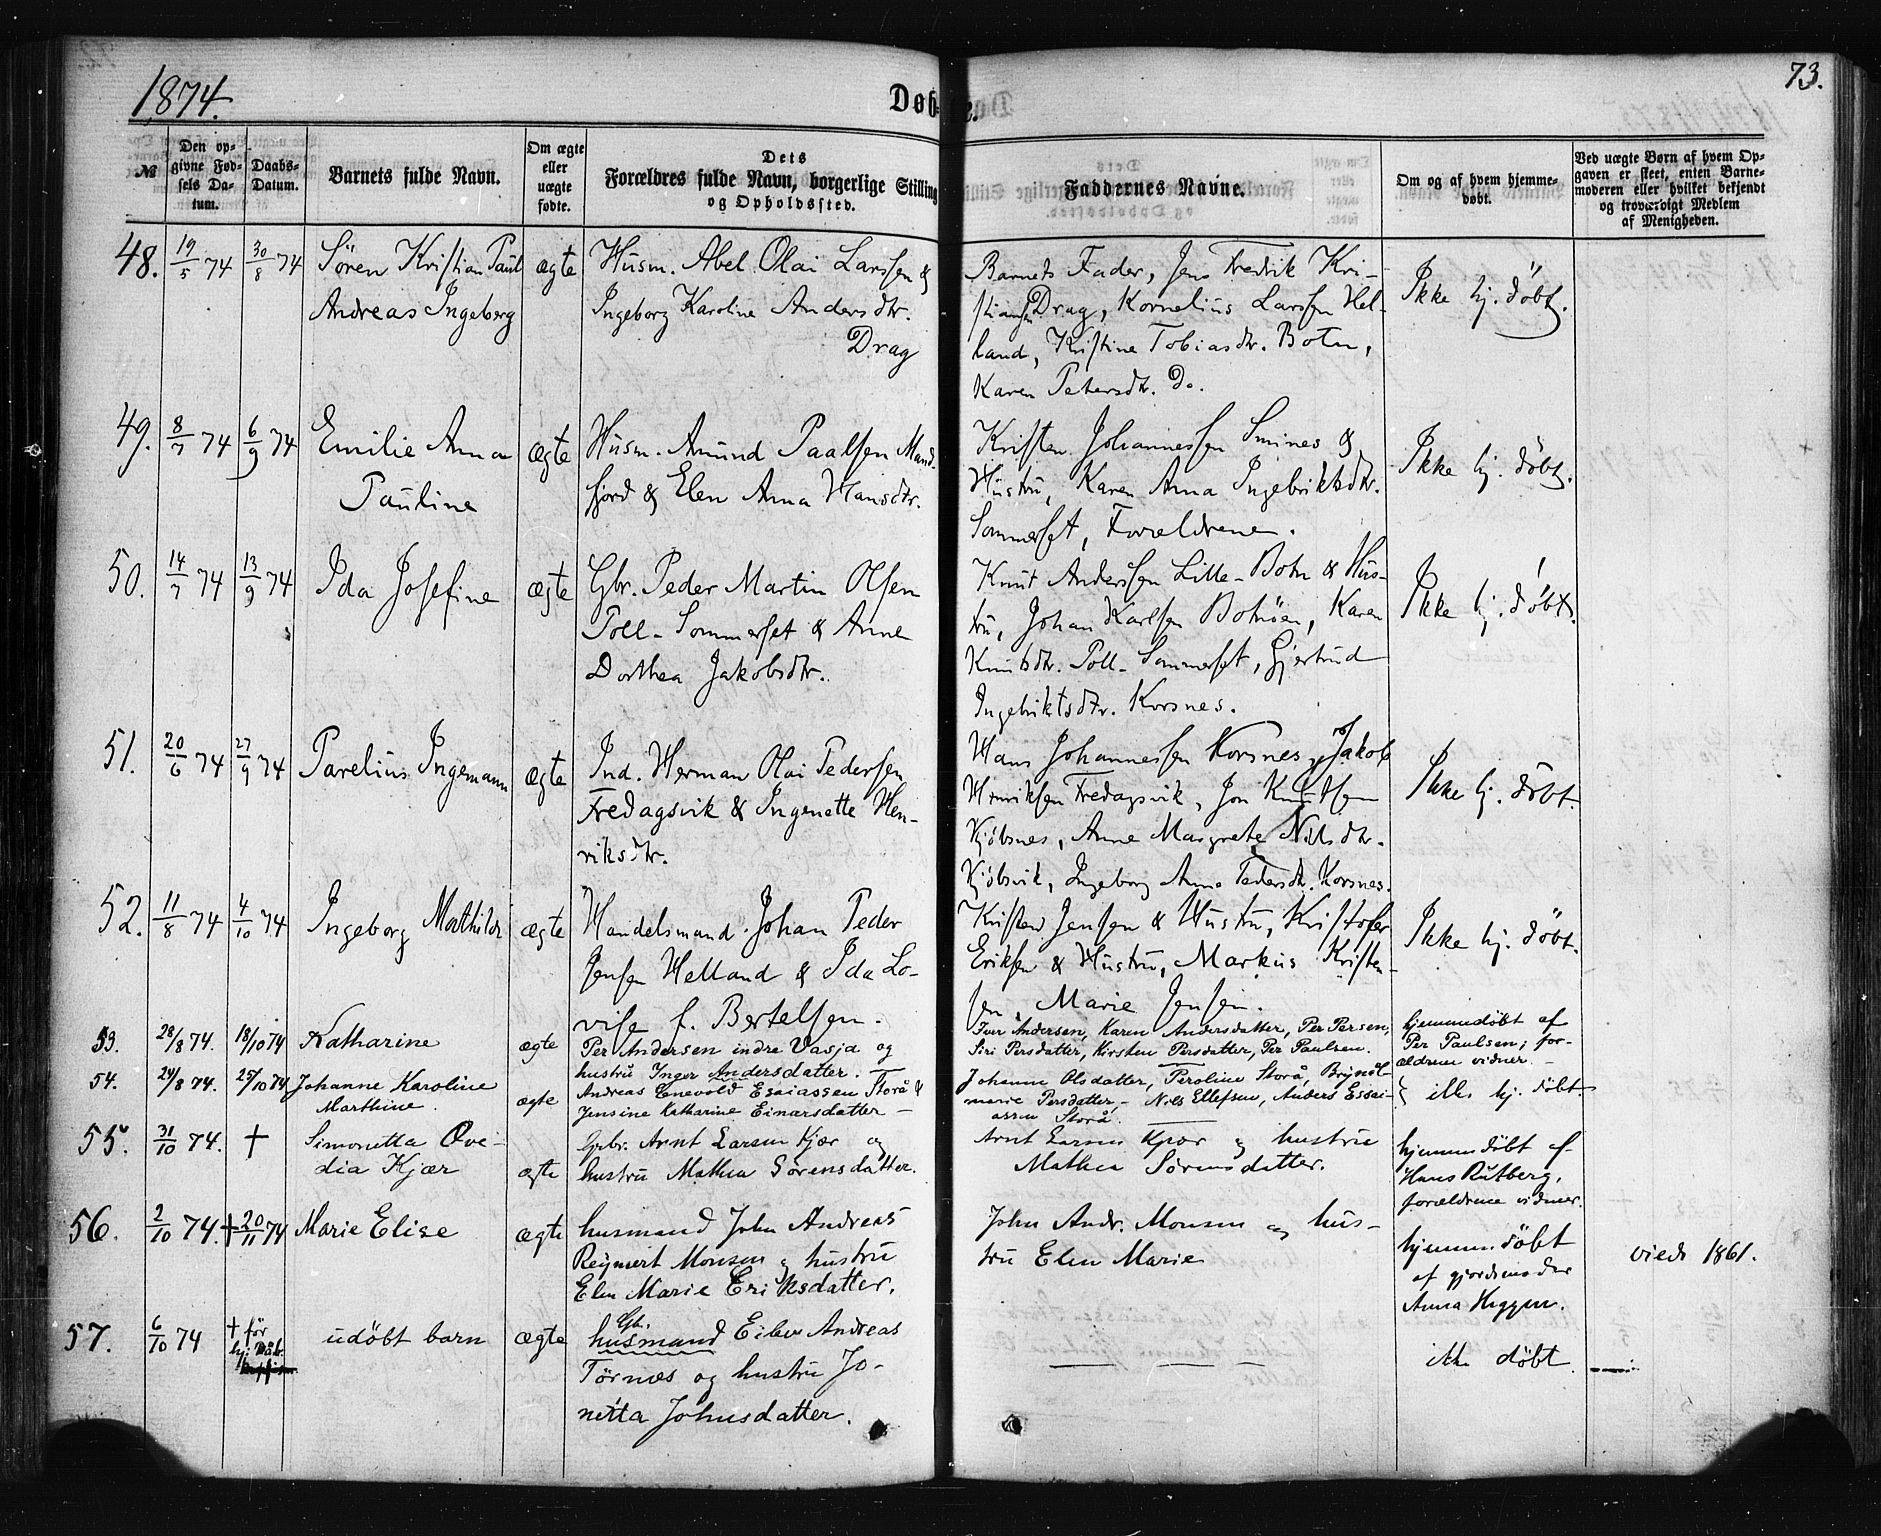 1874.
Døb-
te.
73.
№
Den op-
givne Fød-
sels Da-
tum.
Daabs-
Datum.
Barnets fulde Navn.
Om ægte
eller
uægte
fødte.
Dets
Forældres fulde Navn, borgerlige Stilling
og Opholdssted.
Faddernes Navne.
Om og af hvem hjemme-
døbt.
Ved uægte Børn af hvem Op-
gaven er skeet, enten Barne-
moderen eller hvilket bekjendt
og troværdigt Medlem
af Menigheden.
48. 19/5 74 30/8 74 Sören Kristian Paul ægte Husm. Abel Olai Larssen &
Andreas Ingeberg Ingeborg Karoline Andersdtr.
Drag
Barnets Fader, Jens Fredrik Kri-
stiansen Drag, Kornelius Larssen Hel-
land, Kristine Tobiasdtr. Botn,
Karen Petersdtr. Do.
Ikke hj. döbt.
49. 8/7 74 6/9 74 Emilie Anna ægte Husm. Amund Paalsen Mand-
Pauline fjord & Elen Anna Hansdtr.
Kristen Johannessen Smines &
Hustru, Karen Anna Ingebriktsdtr.
Sommerset, Forældrene.
Ikke hj. döbt.
50. 14/7 74 13/9 74 Ida Josefine ægte Gbr. Peder Martin Olsen
Poll-Sommerset & Anne
Dorthea Jakobsdtr.
Knut Anderssen Lille-Botn & Hus-
tru, Johan Karlsen Botnöen, Karen
Knutsdtr. Poll-Sommerset, Gjertrud
Ingebriktsdtr. Korsnes.
Ikke hj. döbt.
51. 20/6 74 27/9 74 Parelius Ingemann ægte Ind. Herman Olai Pedersen
Fredagsvik & Ingenette Hen-
riksdtr.
Hans Johannessen Korsnes, Jakob
Henriksen Fredagsvik, Jon Knutsen
Kjöbsnes, Anne Margrete Nilsdtr.
Kjöbsvik, Ingeborg Anna Pedersdtr. Korsnes.
Ikke hj. döbt.
52. 11/8 74 4/10 74 Ingeborg Mathilde ægte Handelsmand Johan Peder
Jensen Helland & Ida Lo-
vise f. Bertelsen.
Kristen Jensen & Hustru, Kristofer
Eriksen & Hustru, Markus Kristen-
sen, Marie Jensen.
Ikke hj. döbt.
53. 28/8 74. 18/10 74 Katharine ægte Per Andersen indre Vasja og
hustru Inger Andersdatter.
Iver Andersen, Karen Andersdatter, Per Persen,
Siri Persdatter, Kirsten Persdatter, Per Paulsen.
hjemmedöbt af
Per Paulsen; for-
ældrene vidner.
54. 24/8 74. 25/10 74 Johanne Karoline ægte Andreas Enevold Esaiassen Storå &
Marthine. Jensine Katharine Einarsdatter
Johanna Olsdatter, Peroline Storå, Brynil-
marie Persdatter, Nils Ellefsen, Anders Essai-
assen Storå.
ikke hj. döbt.
55. 31/10 74. † Simonetta Ove- ægte Gbr. Arnt Larsen Kjær og
dia Kjær hustru Mathea Sörensdatter.
Arnt Larsen Kjær og hustru
Mathea Sörensdatter.
hjemmedöbt af
Hans Rutberg,
forældrene vidner.
56. 2/10 74. † 20/11 74 Marie Elise ægte husmand John Andreas
Reinert Monsen og hustru
Elen Marie Eriksdatter.
John Andr. Monsen og hus-
tru Elen Marie
hjemmedöbt
af gjordemoder
Anna Heggen.
viede 1861.
57. 6/10 74 † för
hj. dåb. udöbt barn ægte Gbr.
husmand Eiler Andreas
Törnæs og hustru Jo-
netta Johnsdatter.
ikke döbt.